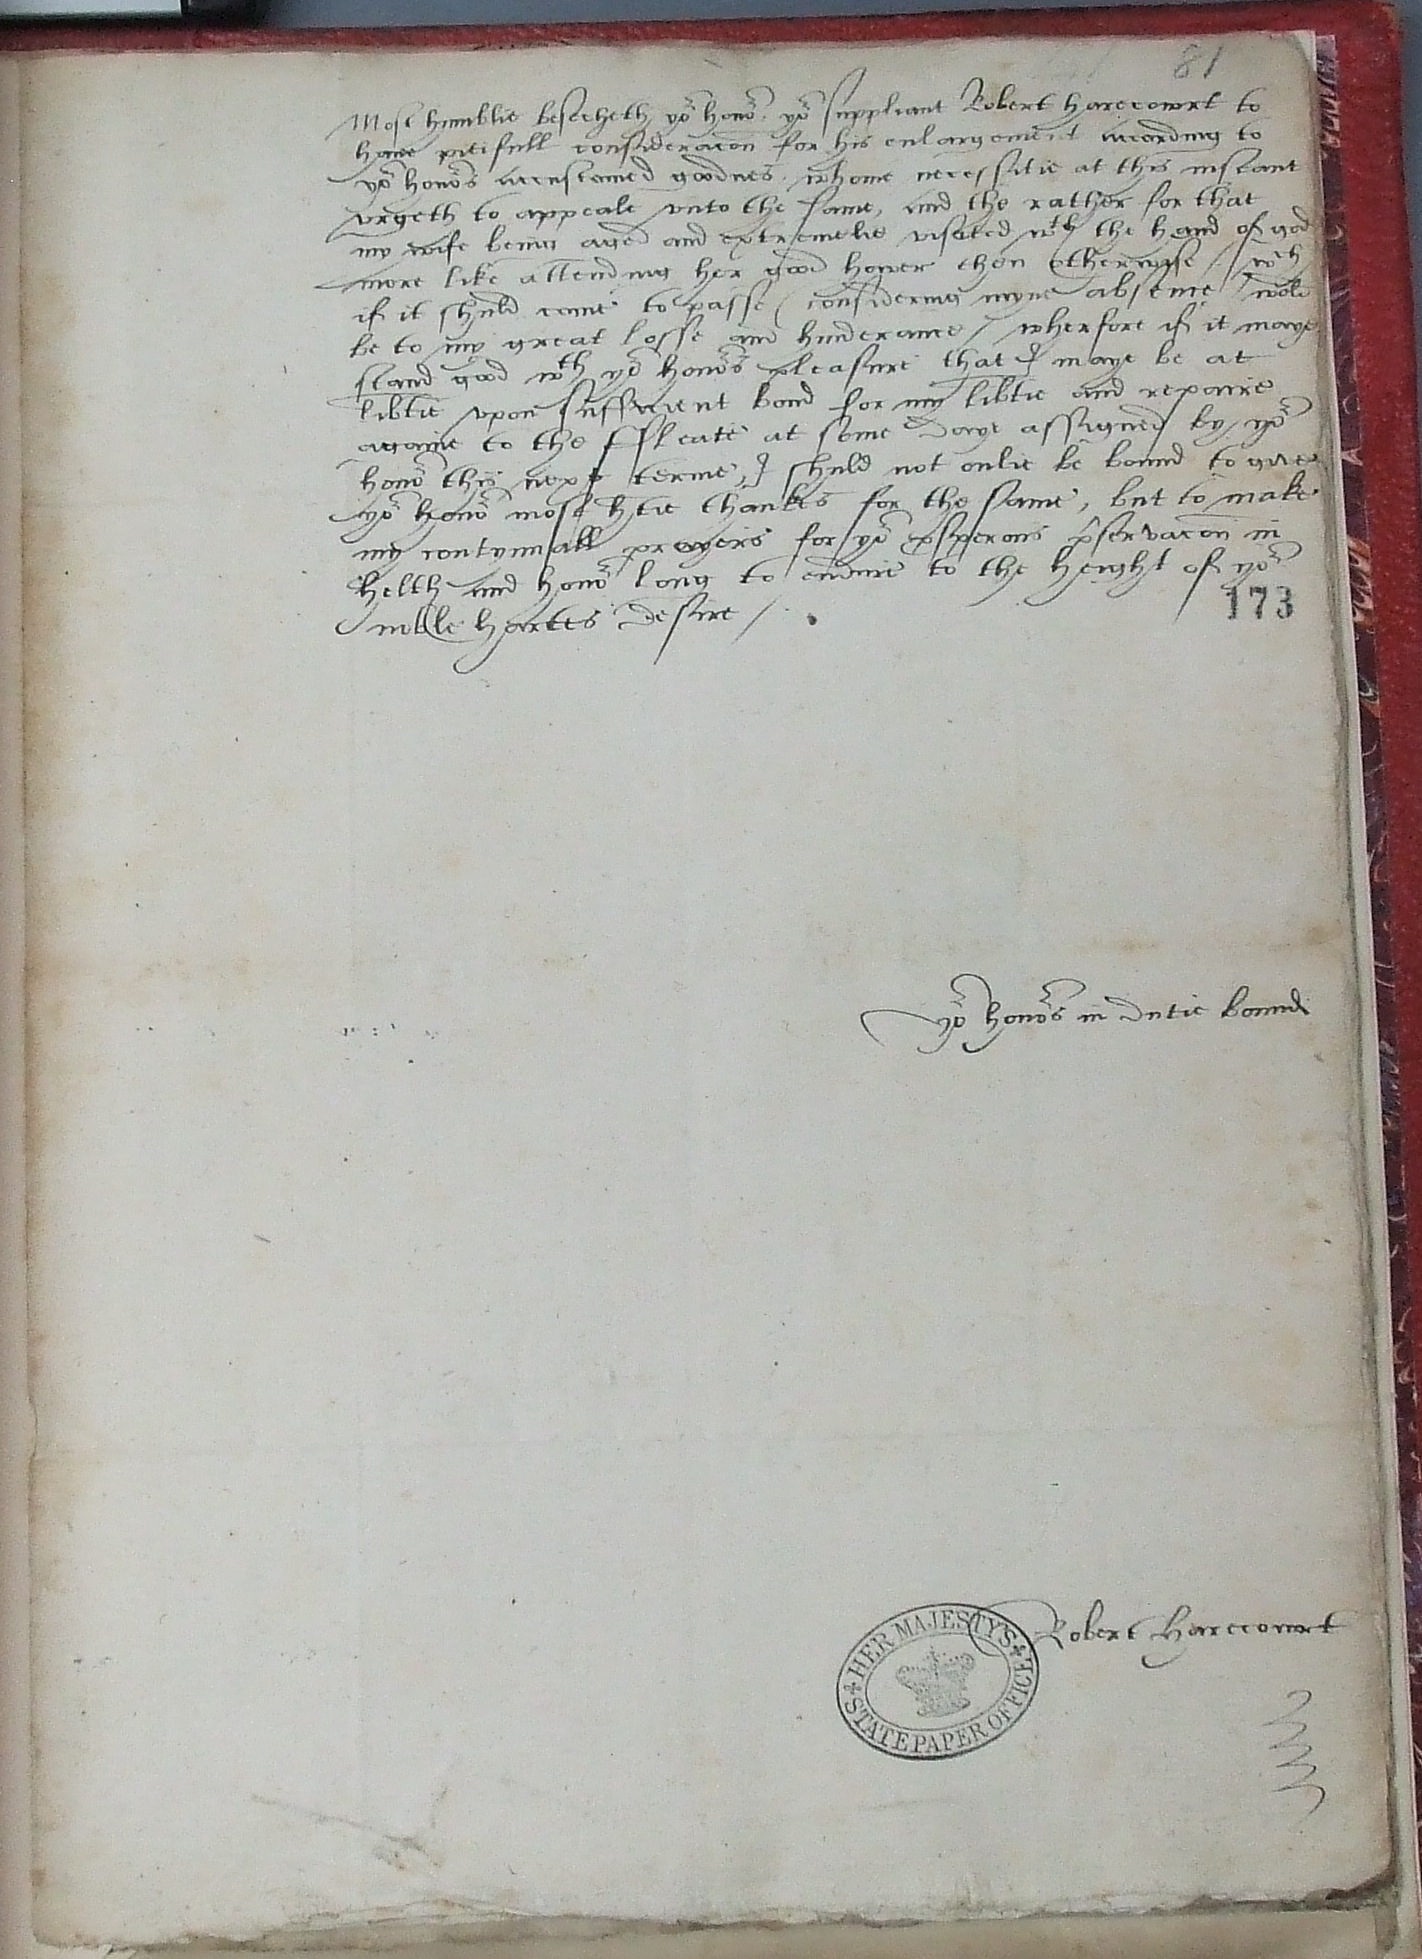 81
Most humblie besecheth yor honor yor suppliant Robert Harecourt to
have pitifull consideracon for his enlargement according to
yor honors accustomed goodnes whome necessitie at this instant
urgeth to appeale unto the same, and the rather for that
my wife being aged and extremelie visited wth the hand of god
more like attending her good hower then otherwyse / wch
if it shuld come to passe (considering myne absence) wold
be to my great losse and hinderance / wherfore if it maye
stand good wth yor honors pleasure that I maye be at
libtie upon sufficient bond for my libtie and repaire
againe to the Fleate at some daye assigned by yor
honor this next terme, I shuld not onlie be bound to give
yor honor most htie thankes for the same, but to make
my contynuall prayers for yor psperous pservacon in
helth and honor long to endure to the height of yor
noble hartes desire /
173
yor honors in dutie bound
Robert Harecourt
HER MAJESTY'S
STATE PAPER OFFICE